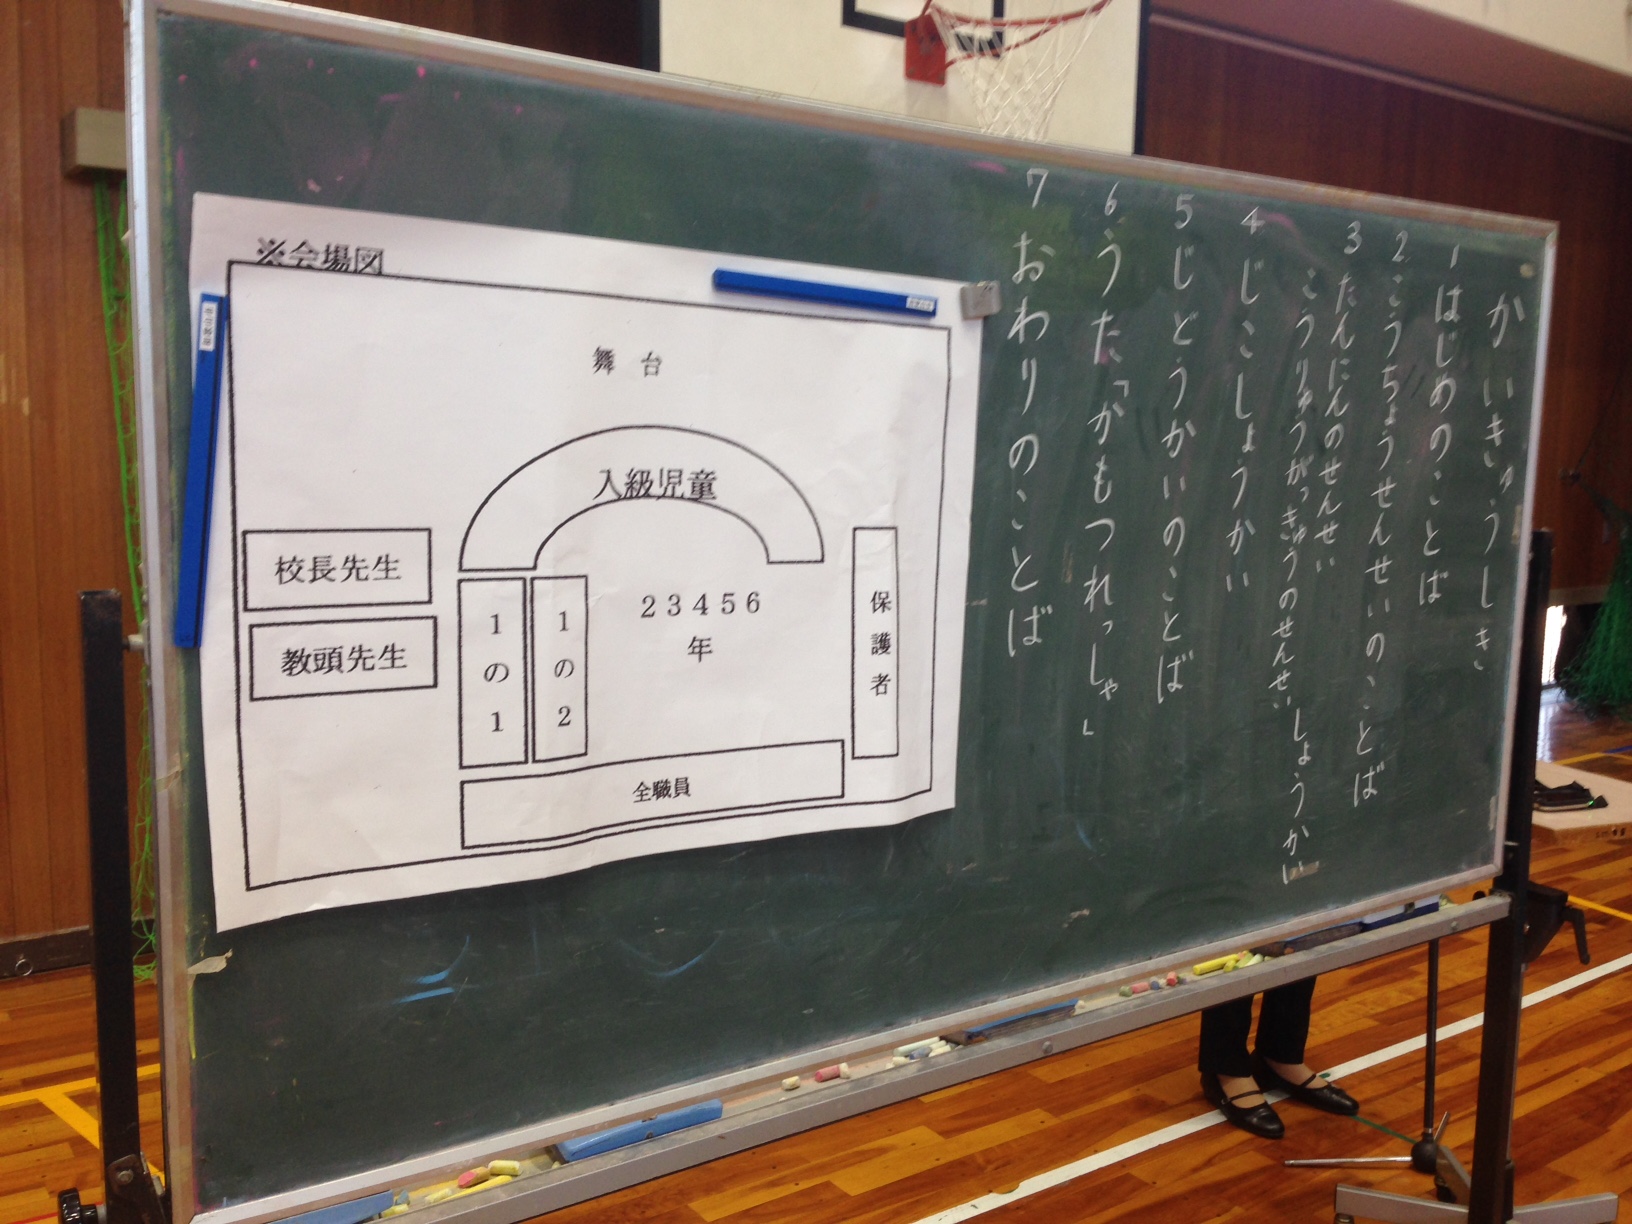 かいきゅうしき
1 はじめのことば
2 こうちょうせんせいのことば
3 たんにんのせんせい
こうりゅうがっきゅうのせんせい しょうかい
4 じこしょうかい
5 じどうかいのことば
6 うた「かもつれっしゃ」
7 おわりのことば
※会場図
舞台
入級児童
校長先生
教頭先生
1の1
1の2
23456
年
保護者
全職員